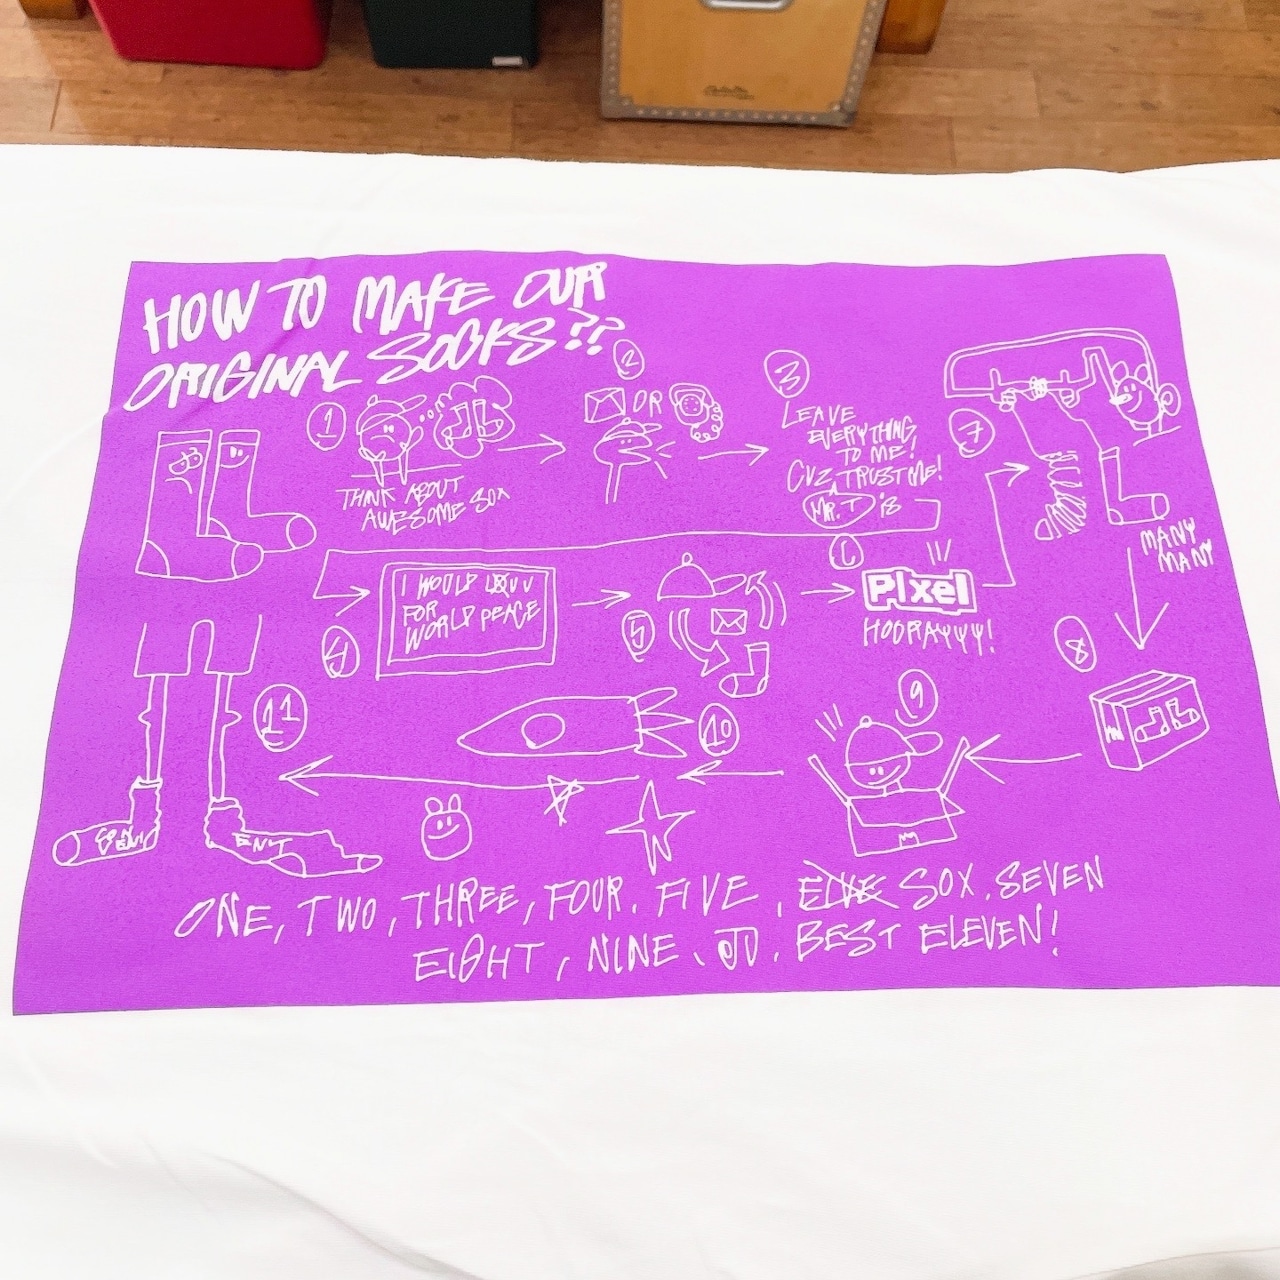 HOW TO MAKE OUR
ORIGINAL SOCKS??
1
THINK ABOUT
AWESOME SOX
2
OR
3
LEAVE
EVERYTHING
TO ME!
CUZ, TRUST ME!
MR. T is
4
I WOULD
FOR
WORLD PEACE
5
6
PIxel
HOORAYYY!
7
MANY
MANY
8
9
10
11
ONE, TWO, THREE, FOUR. FIVE, SOX. SEVEN
EIGHT, NINE, BEST ELEVEN!